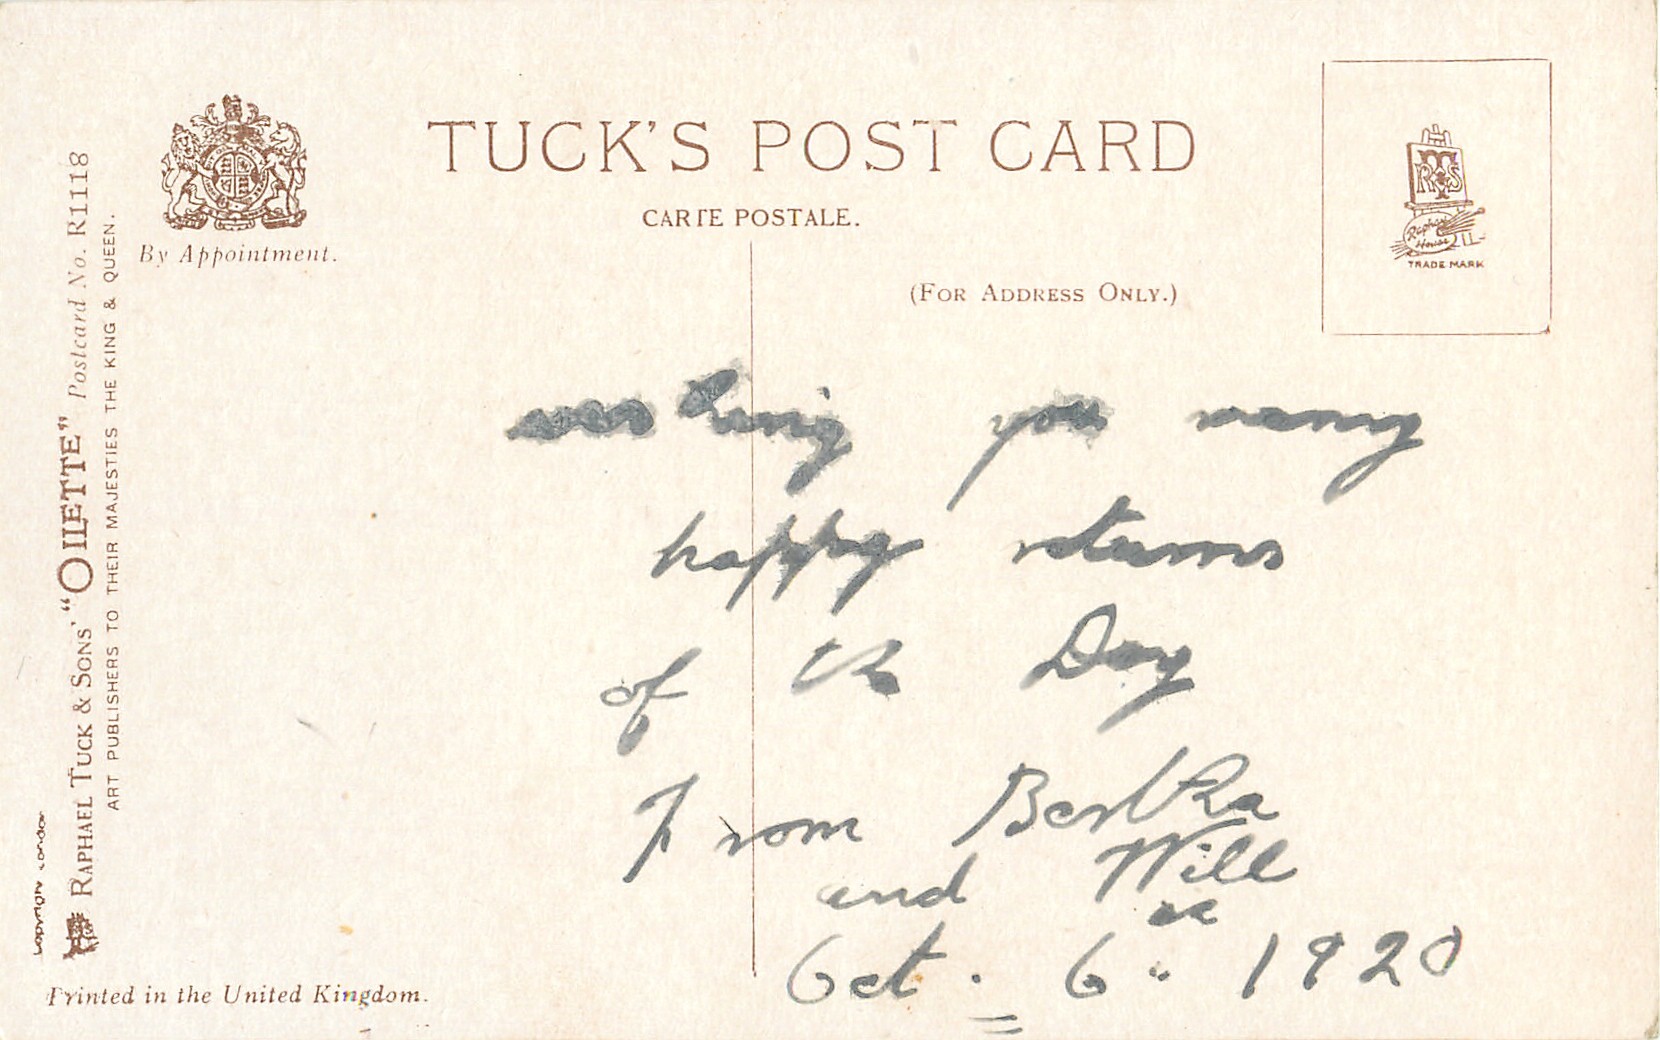 TUCK'S POST CARD
CARTE POSTALE.
By Appointment.
(FOR ADDRESS ONLY.)
RTS
Raphael House
TRADE MARK
RAPHAEL TUCK & SONS' "OILETTE" Postcard No. R1118
ART PUBLISHERS TO THEIR MAJESTIES THE KING & QUEEN.
Copyright London
Printed in the United Kingdom.
wishing you many
happy returns
of the Day
From Bertha
and Will
Oct. 6 1920